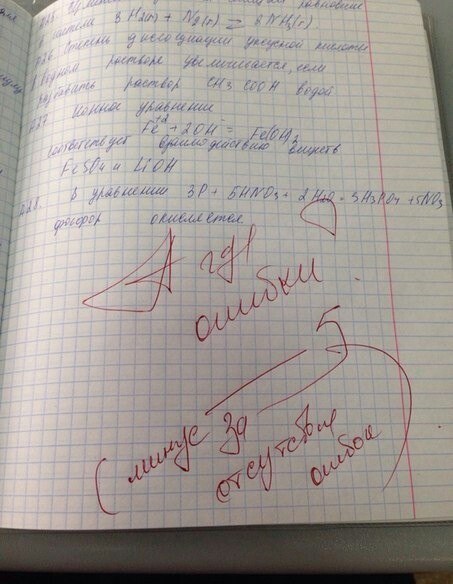 3 H2(г) + N2(г) ⇄ 2NH3(г).
Степень диссоциации уксусной кислоты
в водном растворе увеличивается, если
разбавить раствор CH3COOH водой
Ионное уравнение
Fe+2 + 2OH- = Fe(OH)2
соответствует взаимодействию веществ
FeSO4 и LiOH
В уравнении 3P + 5HNO3 + 2H2O = 3H3PO4 + 5NO
фосфор окисляется.
А где
ошибки?
5
(минус за
отсутствие
ошибок)